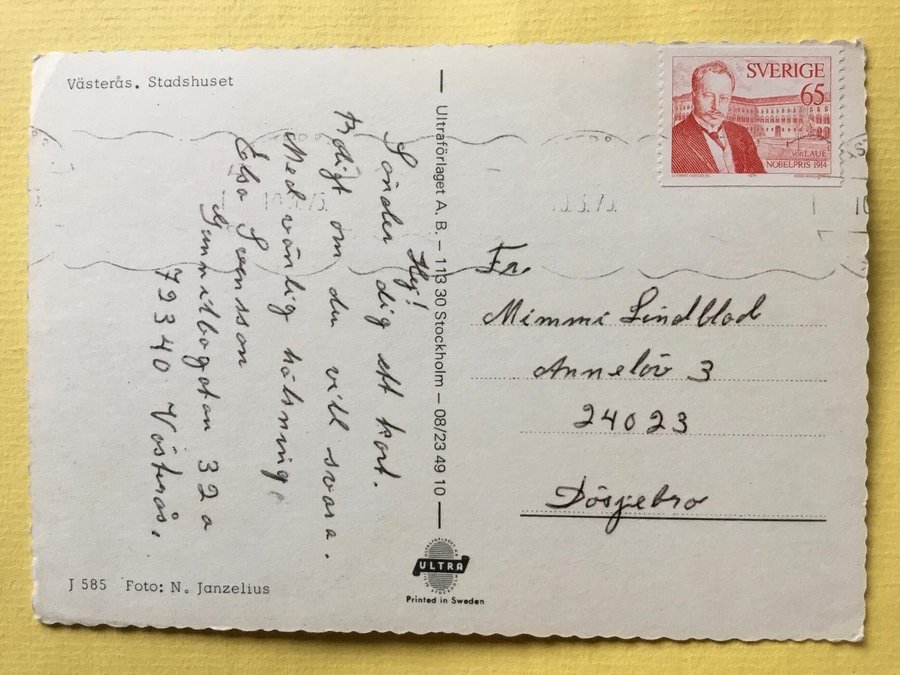 Västerås. Stadshuset
SVERIGE
65
von LAUE
NOBELPRIS 1914
Hej!
Sänder dig ett kort.
Roligt om du vill svara.
Med vänlig hälsning.
Elsa Svensson
Gunnilbogatan 32a
79340 Västerås.
Ultraförlaget A. B. – 113 30 Stockholm – 08/23 49 10
Fr.
Mimmi Lindblad
Annelöv 3
24023
Dösjebro
J 585 Foto: N. Janzelius
ULTRA
Printed in Sweden